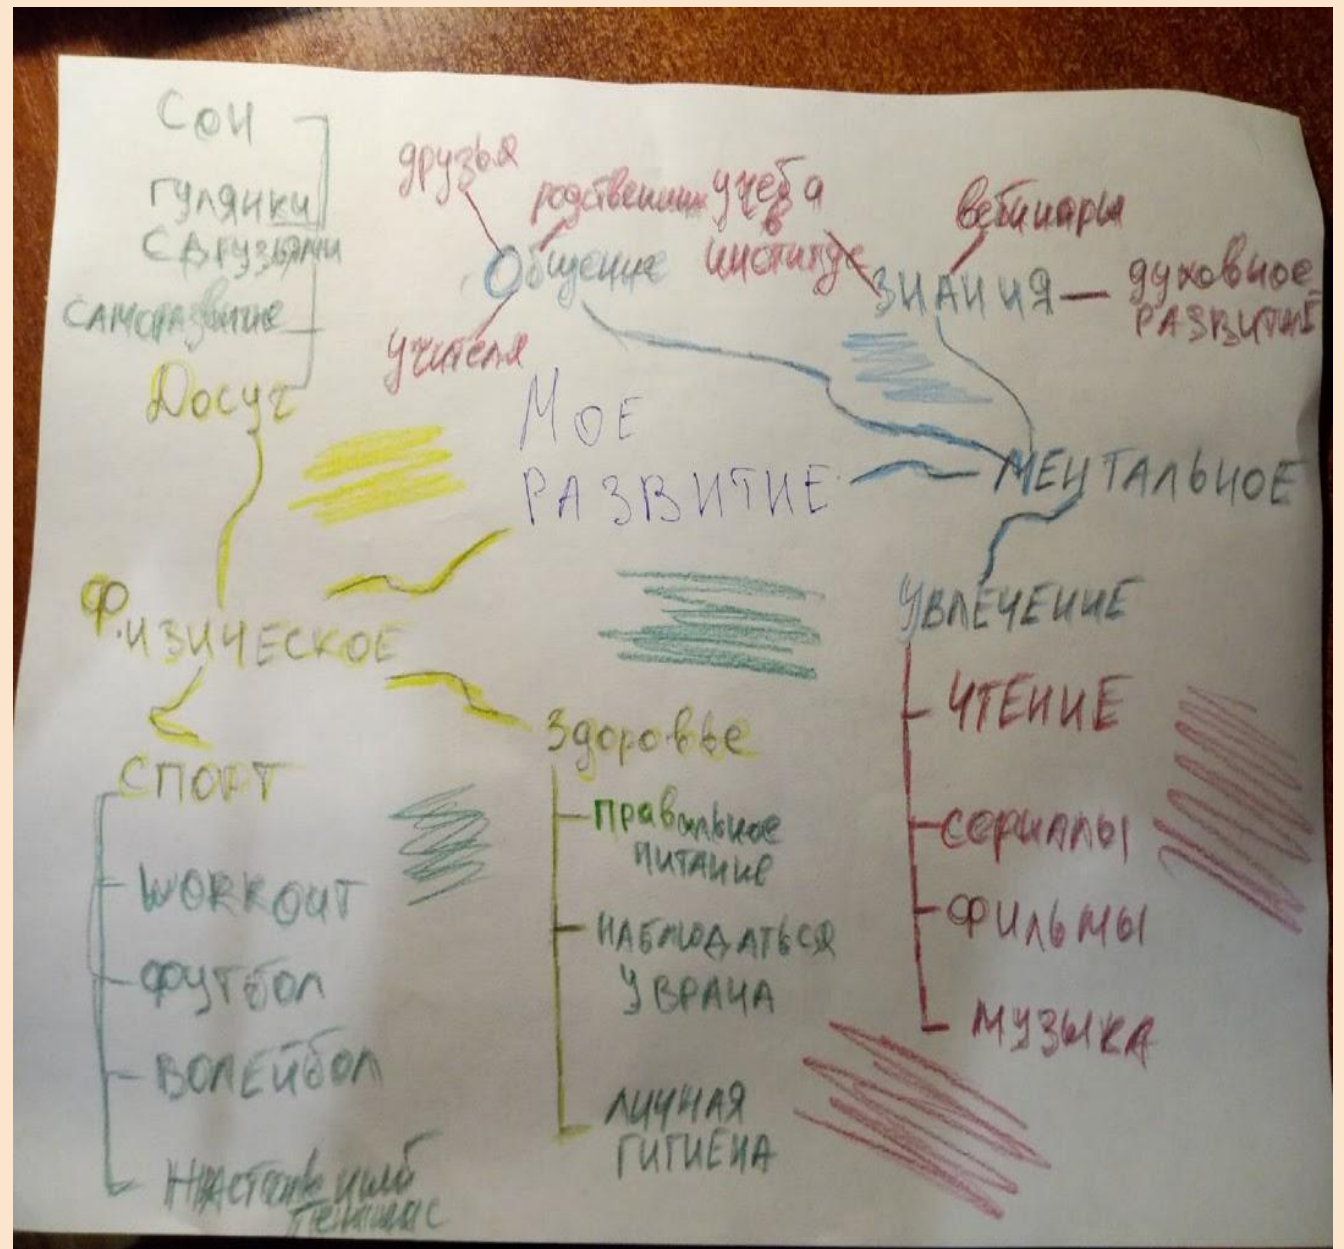 Сон
гулянки
с друзьями
саморазвитие
Досуг
друзья
родственники
Общение
учителя
учеба
в
институте
вебинары
ЗНАНИЯ
духовное
РАЗВИТИЕ
МОЕ
РАЗВИТИЕ
МЕНТАЛЬНОЕ
ФИЗИЧЕСКОЕ
УВЛЕЧЕНИЕ
ЧТЕНИЕ
СЕРИАЛЫ
ФИЛЬМЫ
МУЗЫКА
СПОРТ
WORKOUT
ФУТБОЛ
ВОЛЕЙБОЛ
Настольный
теннис
Здоровье
Правильное
питание
НАБЛЮДАТЬСЯ
У ВРАЧА
ЛИЧНАЯ
ГИГИЕНА